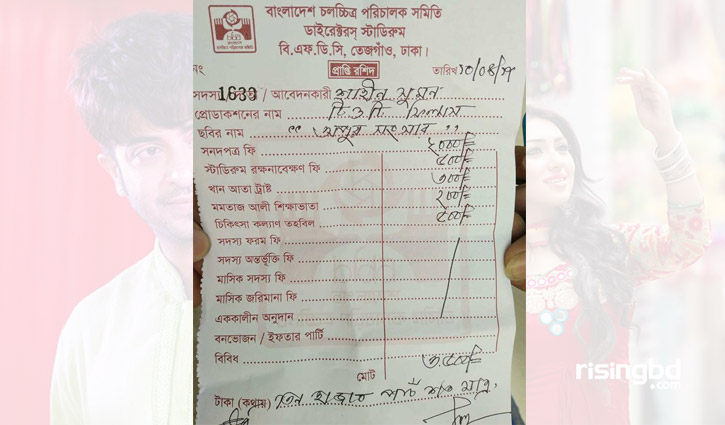 বাংলাদেশ চলচ্চিত্র পরিচালক সমিতি
ডাইরেক্টরস্ স্টাডিরুম
বি.এফ.ডি.সি, তেজগাঁও, ঢাকা।
প্রাপ্তি রশিদ
নং 1639 তারিখ ১০/০৪/১৭
সদস্য / আবেদনকারী শাহীন সুমন
প্রোডাকশনের নাম টি.ও.টি. ফিল্মস
ছবির নাম
সনদপত্র ফি ২০০০/=
স্টাডিরুম রক্ষনাবেক্ষণ ফি ৫০০/=
খান আতা ট্রাষ্ট ৩০০/=
মমতাজ আলী শিক্ষাভাতা ২০০/=
চিকিৎসা কল্যাণ তহবিল ৫০০/=
সদস্য ফরম ফি
সদস্য অন্তর্ভূক্তি ফি
মাসিক সদস্য ফি
মাসিক জরিমানা ফি
এককালীন অনুদান
বনভোজন / ইফতার পার্টি
বিবিধ
মোট ৩৫০০/=
টাকা (কথায়) তিন হাজার পাঁচ শত মাত্র,
risingbd
.com